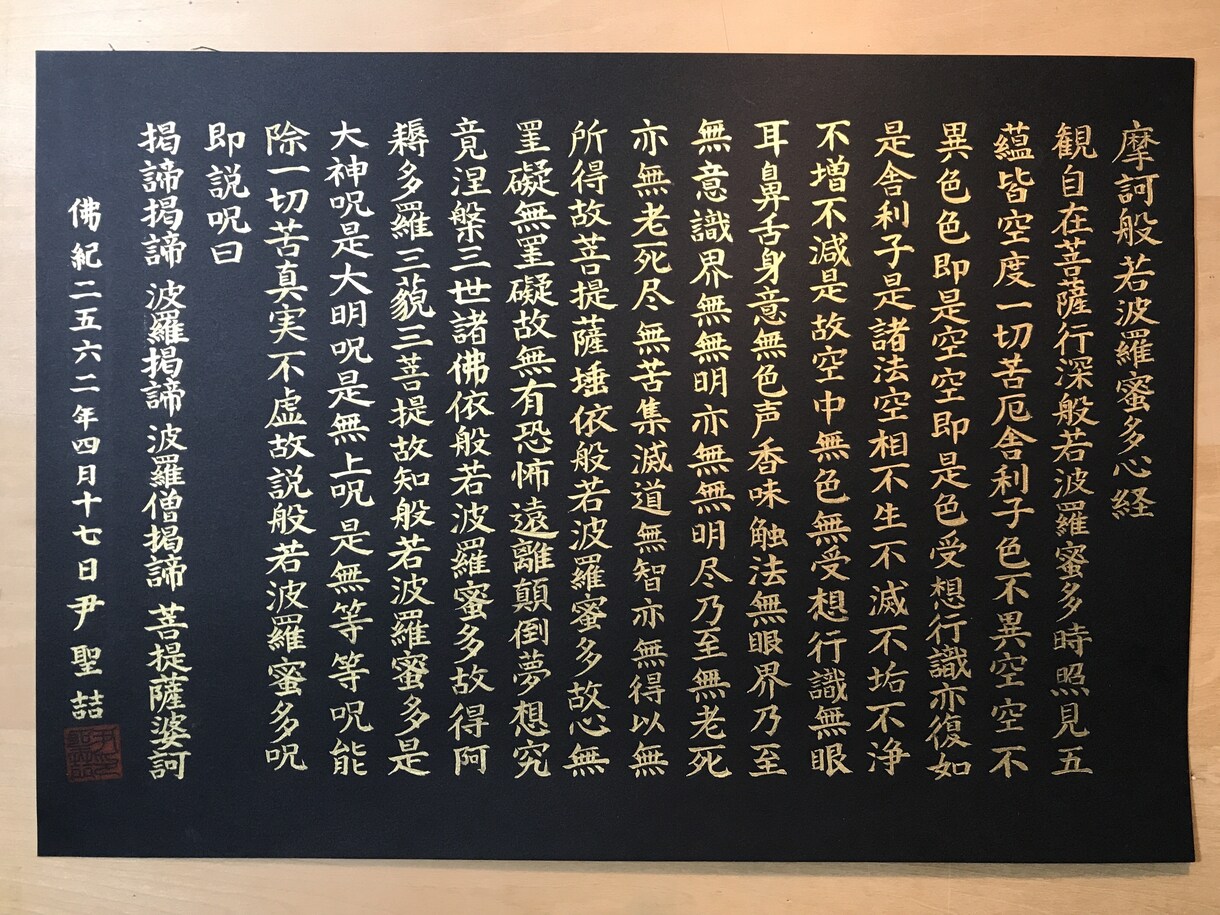 摩訶般若波羅蜜多心経
観自在菩薩行深般若波羅蜜多時照見五
蘊皆空度一切苦厄舎利子色不異空空不
異色色即是空空即是色受想行識亦復如
是舎利子是諸法空相不生不滅不垢不浄
不増不減是故空中無色無受想行識無眼
耳鼻舌身意無色声香味触法無眼界乃至
無意識界無無明亦無無明尽乃至無老死
亦無老死尽無苦集滅道無智亦無得以無
所得故菩提薩埵依般若波羅蜜多故心無
罣礙無罣礙故無有恐怖遠離顛倒夢想究
竟涅槃三世諸佛依般若波羅蜜多故得阿
耨多羅三藐三菩提故知般若波羅蜜多是
大神呪是大明呪是無上呪是無等等呪能
除一切苦真実不虚故説般若波羅蜜多呪
即説呪曰
掲諦掲諦 波羅掲諦 波羅僧掲諦 菩提薩婆訶
佛紀二五六二年四月十七日尹聖喆